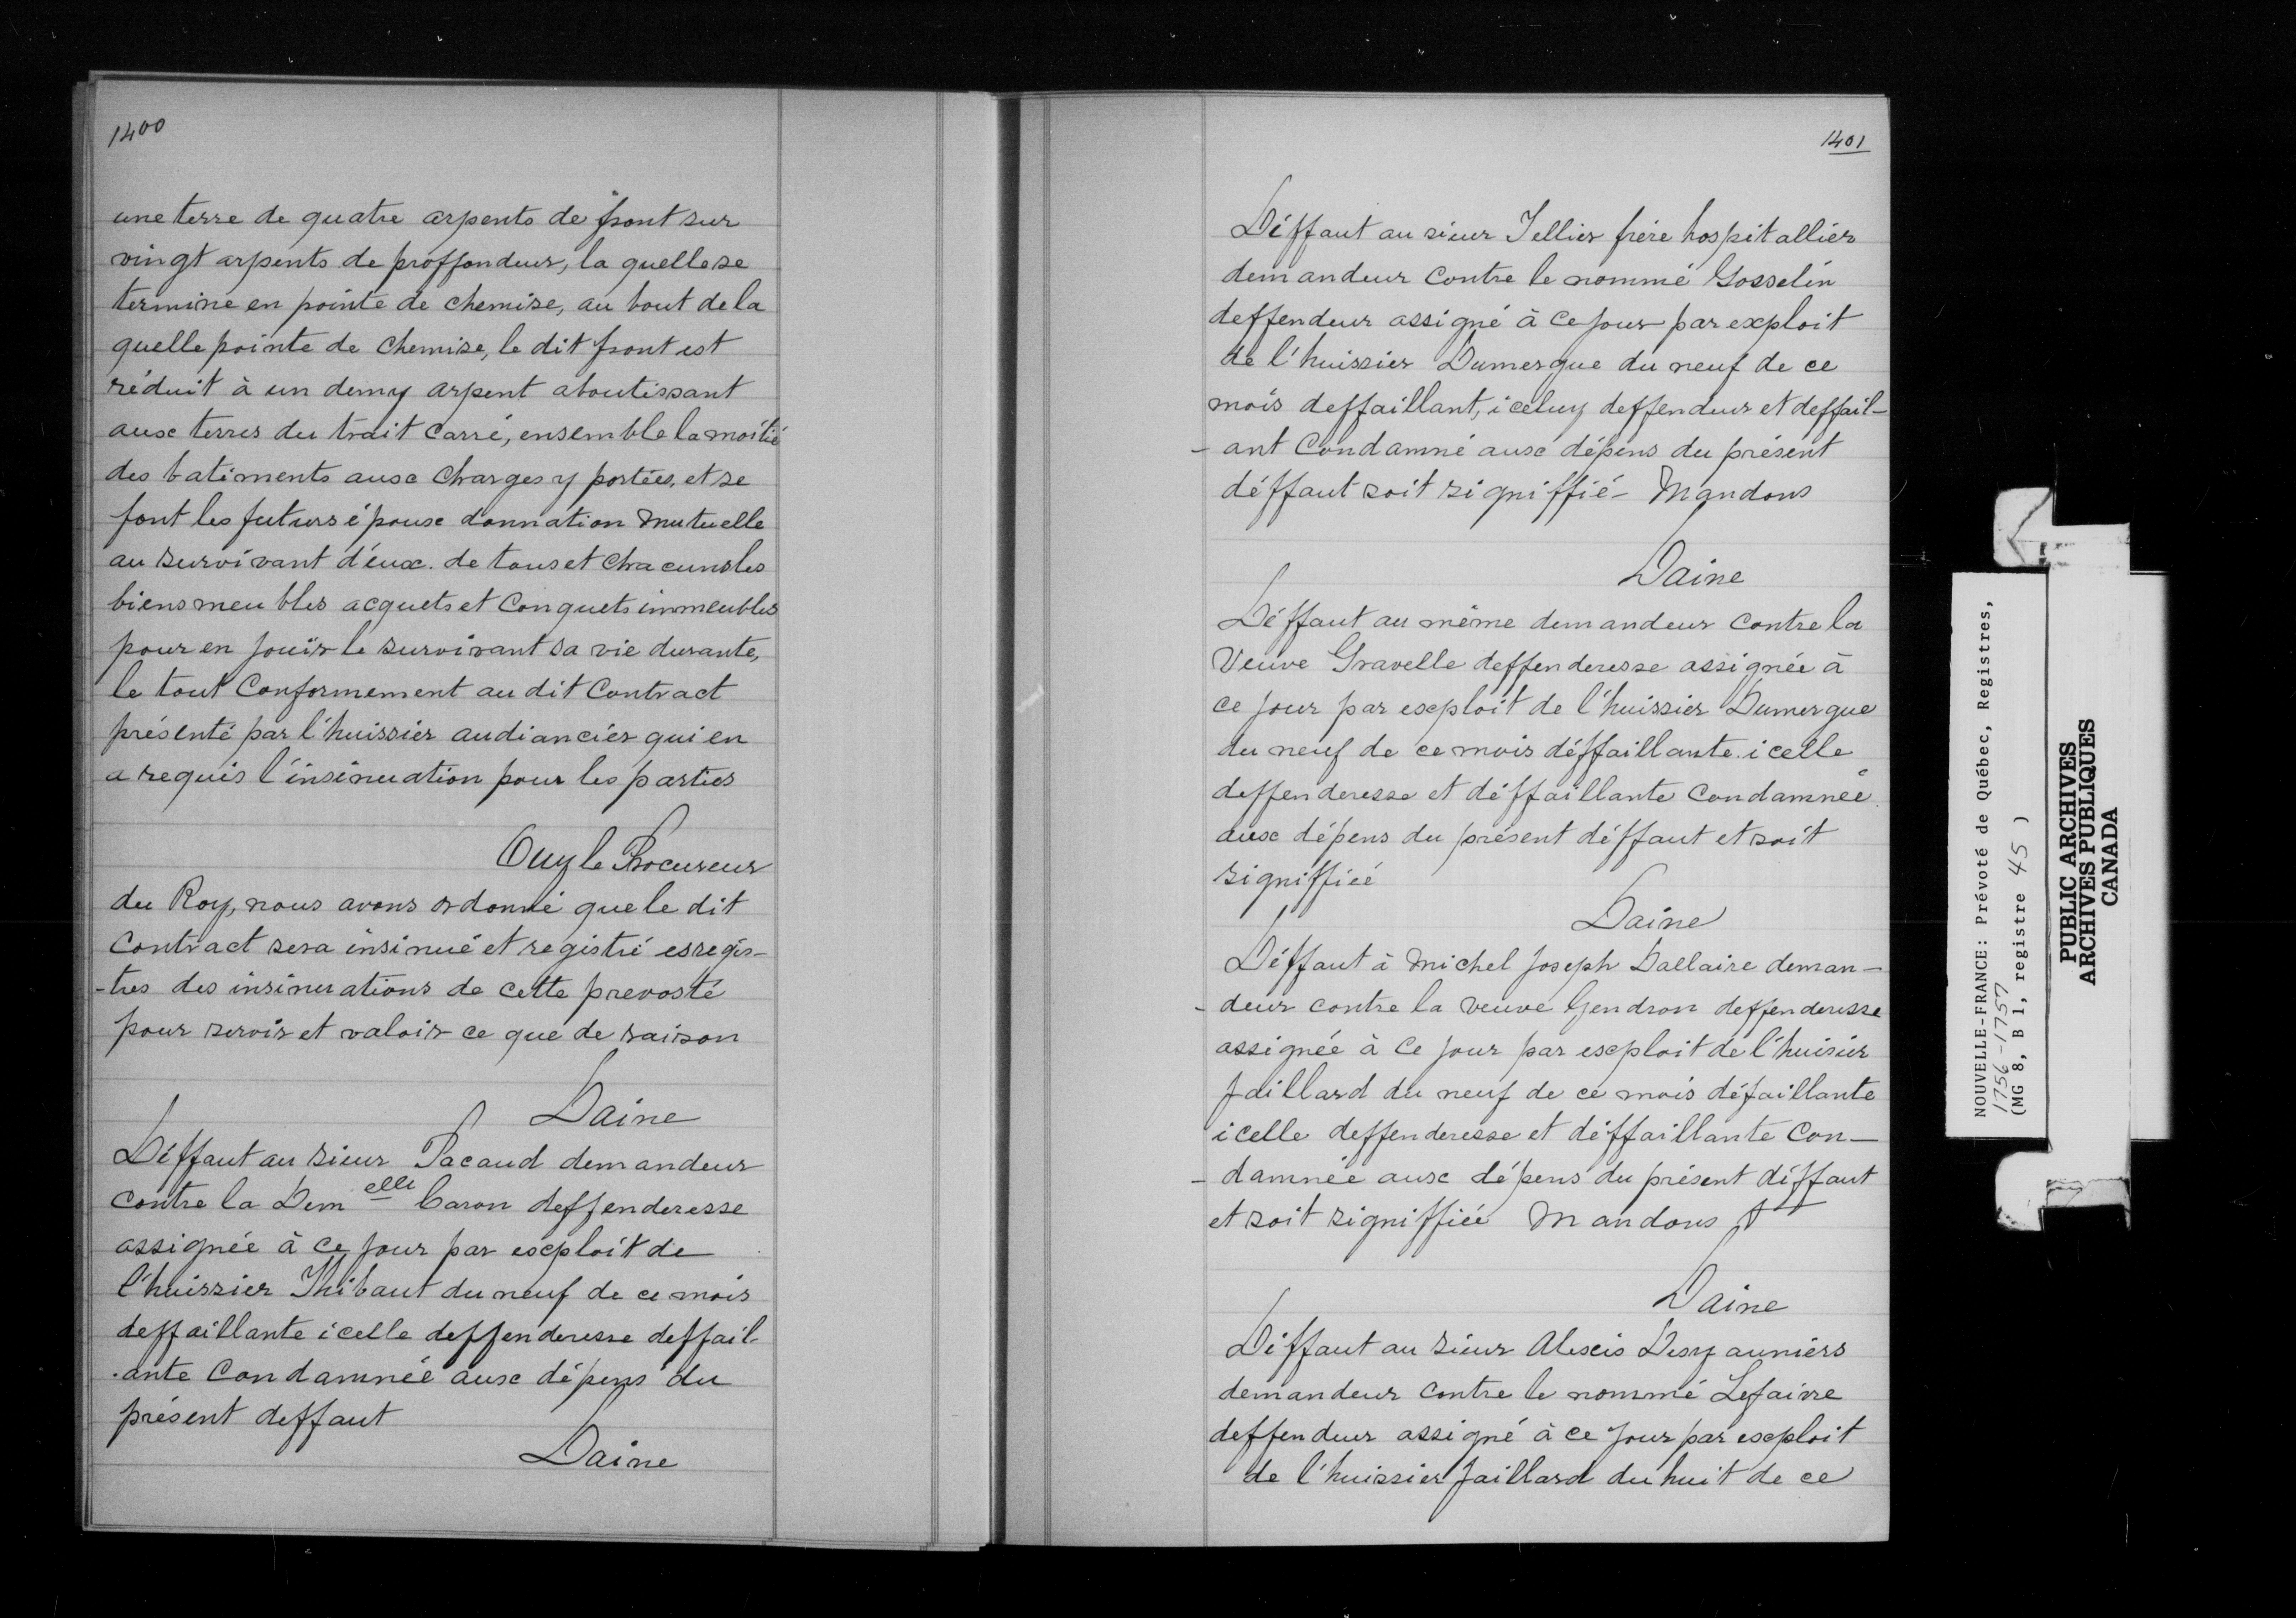 1400
une terre de quatre arpents de front sur
vingt arpents de proffondeur, la quelle se
termine en pointe de chemise, au bout de la
quelle pointe de chemise, le dit front est
réduit à un demy arpent aboutissant
aux terres du trait carré, ensemble la moitié
des batiments aux charges y portées, et se
font les futurs époux donnation mutuelle
au survivant d'eux. de tous et chacuns les
biens meubles acquets et conquets immeubles
pour en jouïr le survivant sa vie durante,
le tout conformement au dit contract
présenté par l'huissier audiancier qui en
a requis l'insinuation pour les parties
Ouy le Procureur
du Roy, nous avons ordonné que le dit
contract sera insinué et registré es regis-
-tres des insinuations de cette prevosté
pour servir et valoir ce que de raison
Daine
Déffaut au sieur Pacaud demandeur
contre la Dem elle Caron deffenderesse
assignée à ce jour par exploit de
l'huissier Thibaut du neuf de ce mois
deffaillante icelle deffenderesse deffail-
-ante condamnée aux dépens du
présent deffaut
Daine
1401
Déffaut au sieur Tellier frère hospitallier
demandeur contre le nommé Gosselin
deffendeur assigné à ce jour par exploit
de l'huissier Dumergue du neuf de ce
mois deffaillant, iceluy deffendeur et deffail-
- ant condamné aux dépens du présent
déffaut soit signiffié - Mandons
Daine
Déffaut au même demandeur contre la
Veuve Gravelle deffenderesse assignée à
ce jour par exploit de l'huissier Dumergue
du neuf de ce mois déffaillante. icelle
deffenderesse et déffaillante condamnée
aux dépens du présent déffaut et soit
signiffiée
Daine
Déffaut à Michel Joseph Dallaire deman-
- deur contre la veuve Gendron deffenderesse
assignée à ce jour par exploit de l'huisier
Jaillard du neuf de ce mois défaillante
icelle deffenderesse et déffaillante con-
- damnée aux dépens du présent déffaut
et soit signiffiée Mandons
Daine
Déffaut au sieur Alexis Desyauniers
demandeur contre le nommé Lefaivre
deffendeur assigné à ce jour par exploit
de l'huissier Jaillard du huit de ce
NOUVELLE-FRANCE: Prévoté de Québec, Registres,
1756-1757
(MG 8, B 1, registre 45 )
PUBLIC ARCHIVES
ARCHIVES PUBLIQUES
CANADA